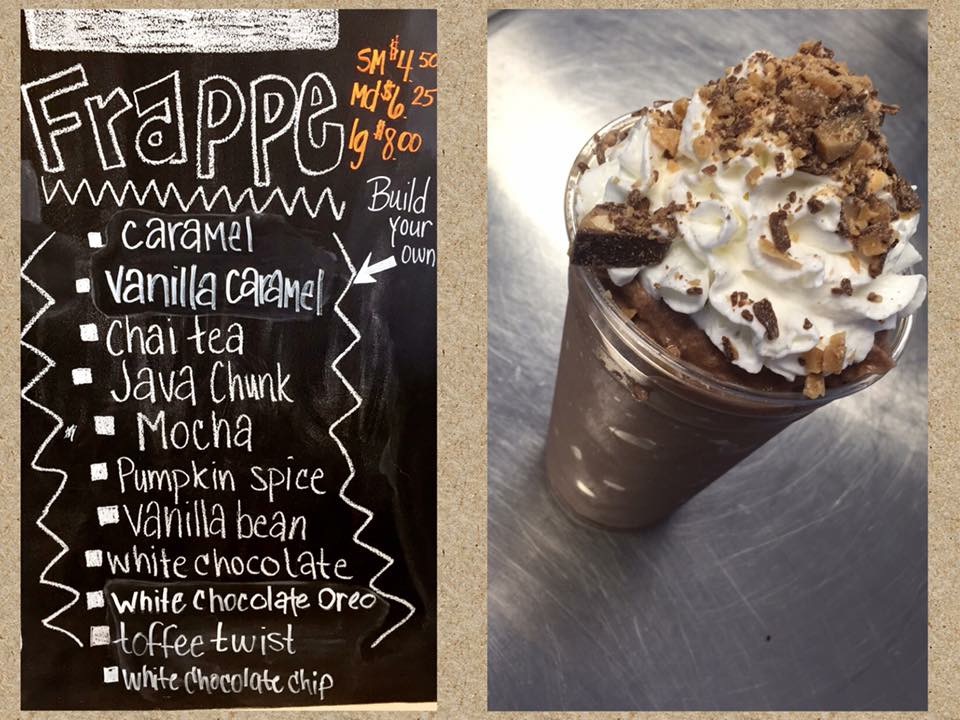 Frappe
SM $4.50
Md $6.25
lg $8.00
Build
your
own
caramel
vanilla caramel
Chai tea
Java Chunk
Mocha
Pumpkin spice
Vanilla bean
white chocolate
white chocolate Oreo
toffee twist
white chocolate chip